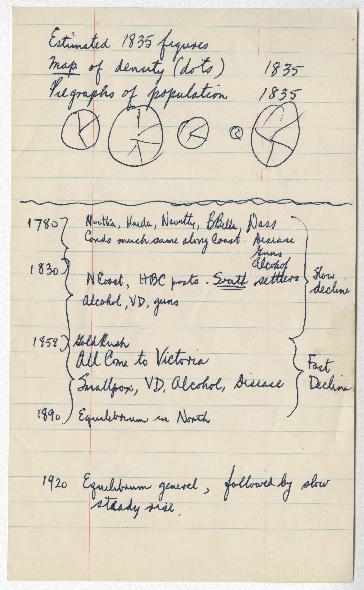 Estimated 1835 figures
Map of density (dots) 1835
Piegraphs of population 1835
1780 Nootka, Haida, Newitty, B Bella, Nass
Conds much same along Coast. Disease
Guns
Alcohol
1830 N Coast, HBC posts. South settlers
Slow
decline
Alcohol, VD, guns
1858 Gold Rush
All Come to Victoria
Smallpox, VD, Alcohol, Disease
Fast
Decline
1890 Equilibrium in North
1920 Equilibrium general, followed by slow
steady rise.